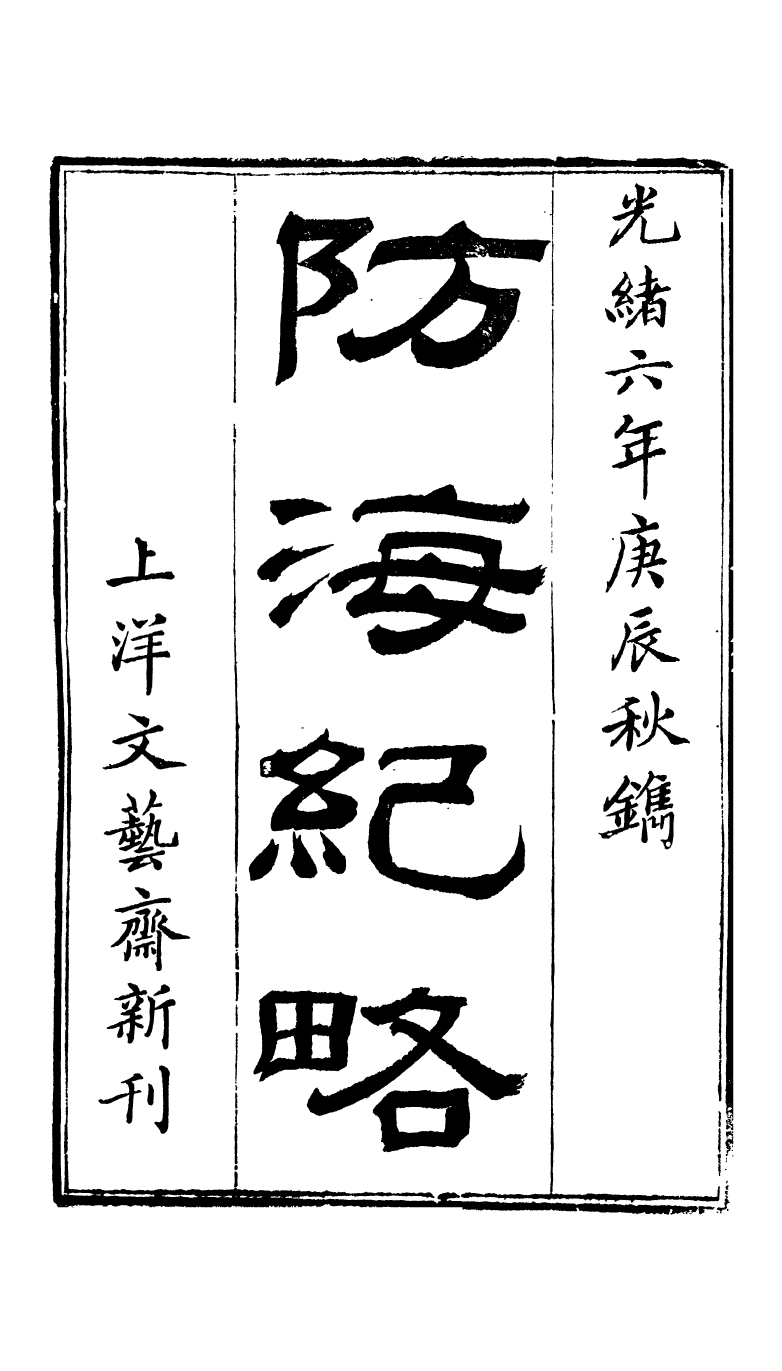 光緒六年庚辰秋鐫
防海紀略
上洋文藝齋新刊